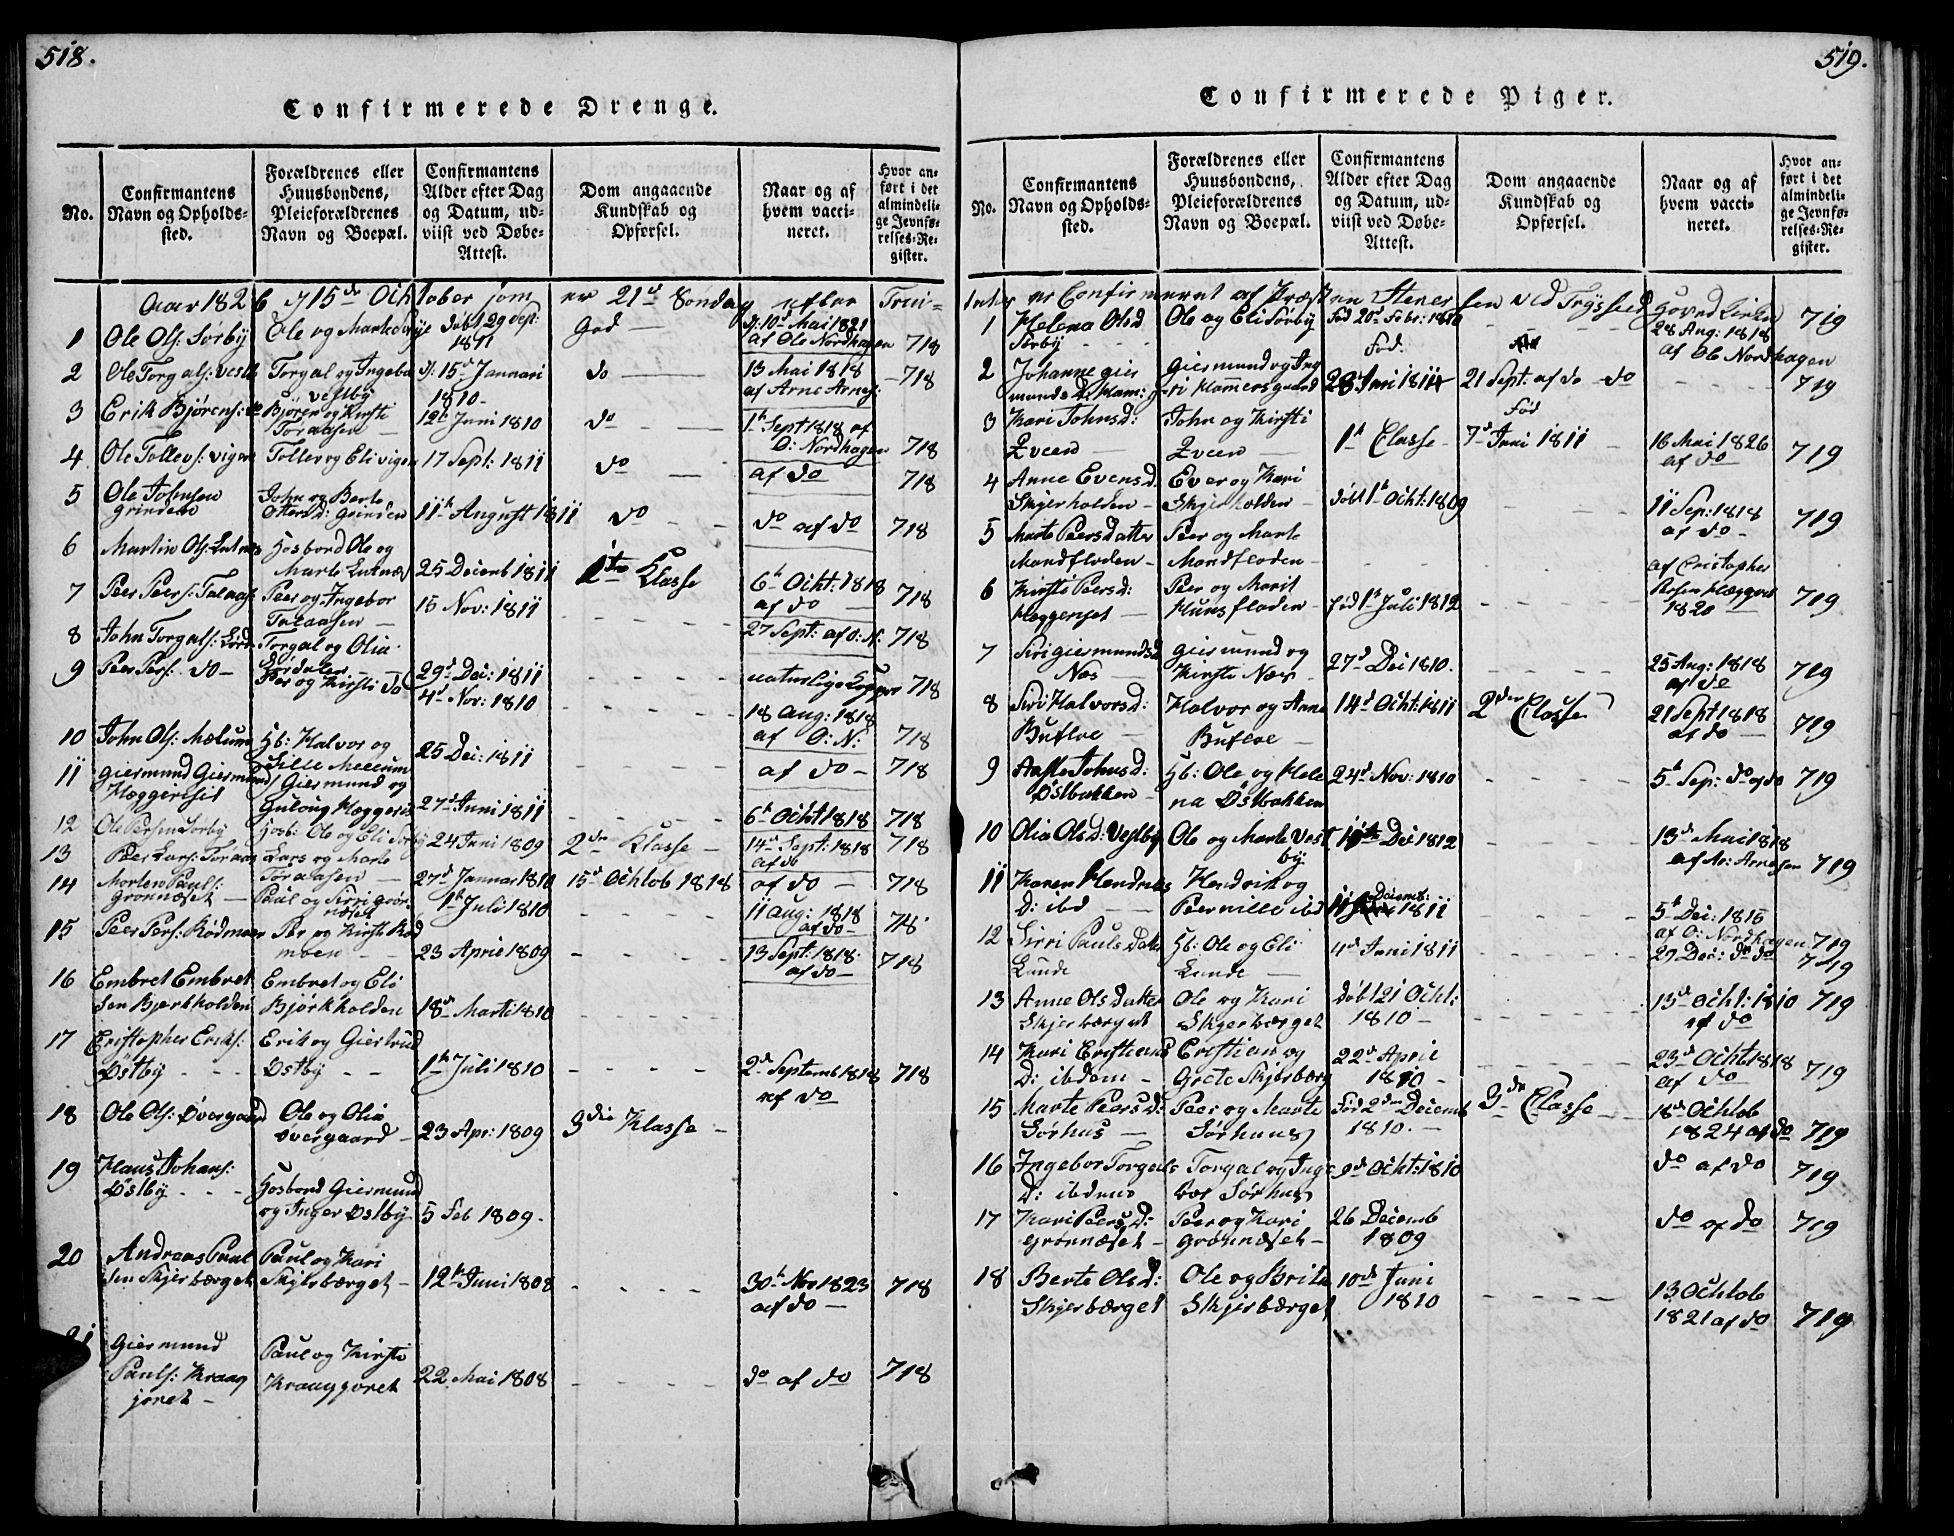 518.
Confirmerede Drenge.
No.
Confirmantens
Navn og Opholds-
sted.
Forældrenes eller
Huusbondens,
Pleieforældrenes
Navn og Boepæl.
Confirmantens
Alder efter Dag
og Datum, ud-
viist ved Døbe-
Attest.
Dom angaaende
Kundskab og
Opførsel.
Naar og af
hvem vacci-
neret.
Hvor an-
ført i det
almindeli-
ge Jevnfø-
relses-Re-
gister.
Aar 1826 d 15de Ochtober som er 21de Sonday efter Trini-
1 Ole Ols: Sørby Ole og Marte døbt 29 Sep: 1811 God d: 10d Mai 1821 af Ole Nordhagen 718
2 Ole Torgals: Vestb Torgal og Ingebor Vestby d: 15d Januari 1810 do 13 Mai 1818 af Arne Arnes: 718
3 Erik Bjørens: Bjøren og Kirsti Toraasen 12te Juni 1810 do 1te Sept 1818 af O: Nordhagen 718
4 Ole Tollevs: Vigen Tollev og Eli Vigen 17 Sept: 1811 do af do 718
5 Ole Johnsen Grinden John og Berte Ottersd: Grinden 11te August 1811 do do af do 718
6 Martin Ols: Lutnes Hosbond Ole og Marte Lutnæs 25 Decemb 1811 1ste Klasse 6te Ocht: 1818 af do 718
7 Peer Peers: Peer og Ingebor 15 Nov: 1811 27 Sept: af O: N: 718
8 John Torgals: Torgal og Olia Lørdalen 29d Dec: 1811 naturlige Kopper 718
9 Peer Pers: do Peer og Kirsti do 4d Nov: 1810 18 Aug: 1818 af O: N: 718
10 John Ols: Mælum Hb: Halvor og Sille Mellum 25 Dec: 1811 af do 718
11 Giermund Giermund Hæggeriset Giermund og Guloug Hæggeris 27d Juni 1811 6te Ocht 1818 718
12 Ole Persen Sørby Hosb: Ole og Eli Sørby 24 Juni 1809 2den Klasse 14d Sept: 1818 af do 718
13 Peer Lars: Toraas Lars og Marte Toraasen 27d Januar 1810 15d Ochtob 1818 af do 718
14 Morten Pauls: Grønnæset Paul og Sirri Grønnæset 1te Juli 1810 11 Aug: 1818 af do 718
15 Peer Pers: Rødmoen Per og Kirsti Rødmoen 23 April 1809 13 Sept: 1818 af do 718
16 Embret Embretsen Bjerkholden Embret og Eli Bjørkholden 18d Marti 1810
17 Cristopher Eriks: Østby Erik og Giertrud Østby 1te Juli 1810 2d Septemb 1818 af do 718
18 Ole Ols: Øvergaard Ole og Olia Øvergaard 23 Apr: 1809 3die Klasse
19 Haus Johans: Østby Hosbond Giermund og Inger Østby 5 Feb 1809.
20 Andreas Paulsen Skjerbærget Paul og Kari Skjerbærget 12te Juni 1808 30te Nov 1823 af do 718
21 Giermund Pauls: Paul og Kirsti 22 Mai 1808 do af do 718
519.
Confirmerede Piger.
No.
Confirmantens
Navn og Opholds-
sted.
Forældrenes eller
Huusbondens,
Pleieforældrenes
Navn og Boepæl.
Confirmantens
Alder efter Dag
og Datum, ud-
viist ved Døbe-
Attest.
Dom angaaende
Kundskab og
Opførsel.
Naar og af
hvem vacci-
neret.
Hvor an-
ført i det
almindeli-
ge Jevnfø-
relses-Re-
gister.
er Confirmeret af Præsten Stenersen ved Trysild Hoved Kirke
1 Helena Olsd Sørby Ole og Eli Sørby Fød 20d Febr: 1810 28 Aug: 1818 af Ole Nordhagen 719
2 Johanne Giermunds D: Ham: Giermund og Ingri Hamersgaard Fød 28 Juni 1811 21 Sept: af do do 719
3 Kari Johnsd: Qveen John og Kirsti Qveen 1te Classe Fød 7d Juni 1811 16 Mai 1826 af do 719
4 Anne Evensd: Skjerholden Ever og Kari Skjerholden døbt 1te Ocht: 1809 11 Sep: 1818 af do 719
5 Marte Peersdatter Mandfloden Peer og Marte Mandfloden af Cristopher
6 Kirsti Peersd: Hæggeriset Peer og Marit Hunsfloden Fød 1te Juli 1812 1820 719
7 Siri Giermundsd Næs Giermund og Kirsti Næs 27d Dec 1810. 25 Aug: 1818 af do 719
8 Siri Halvorsd: Bufloe Halvor og Anne Bufloe 14d Ocht: 1811 2den Classe 21 Sept 1818 af do 719
9 Aaste Johnsd: Østbakken Hb: Ole og Helena Østbakken 24d Nov: 1810 5te Sep: do af do 719
10 Olia Olsd: Vestby Ole og Marte Vestby Dec 1812 13de Mai 1818 af Ar: Arnesen 719
11 Karen Hendricks D: ibd Hendrik og Peernille ibd 11 Decemb: 1811 5te Dec: 1815 af O: Nordhagen 719
12 Sirri Pauls Datter Lunde Hb: Ole og Eli Lunde 4d Juni 1811 29 Dec: do do 719
13 Anne Olsdatter Skjerbærget Ole og Kari Skjerbærget Døbt 21 Ocht: 1810 15d Ocht: 1810 af do 719
14 Kari Cristians D: ibdem Cristian og Grete Skjerbærg 22d April 1810 23d Ocht 1818 af do 719
15 Marte Peersd: Sørhus Peer og Marte Sørhuus Fød 2den Decemb 1810. 3die Classe 18d Ochtob 1824 af do 719
16 Ingebor Torgals D: ibdem Torgal og Ingebor Sørhus 9d Ocht: 1810 do af do 719
17 Kari Peersd: Grønnæset Peer og Kari Grønnæset 26 Decemb 1809 do af do 719
18 Berte Olsd: Skjerbærget Ole og Brita Skjerbærget 10de Juni 1810 13 Ochtob 1821 af do 719